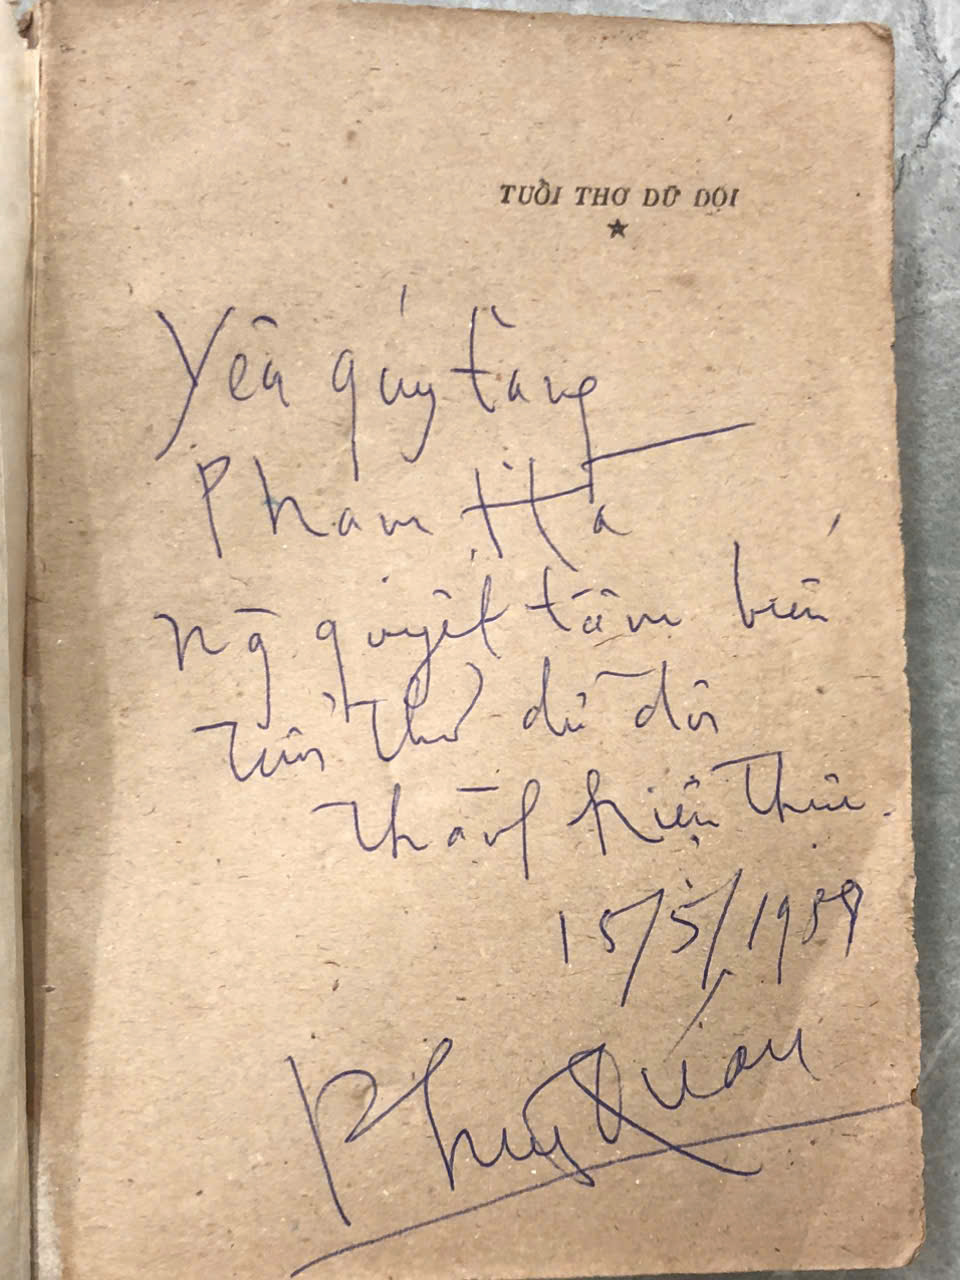 TUỔI THƠ DỮ DỘI
Yêu quý tặng
Phạm Hà
quyết tâm biến
tuổi thơ dữ dội
thành hiện thực.
15/5/1989
Phùng Quán